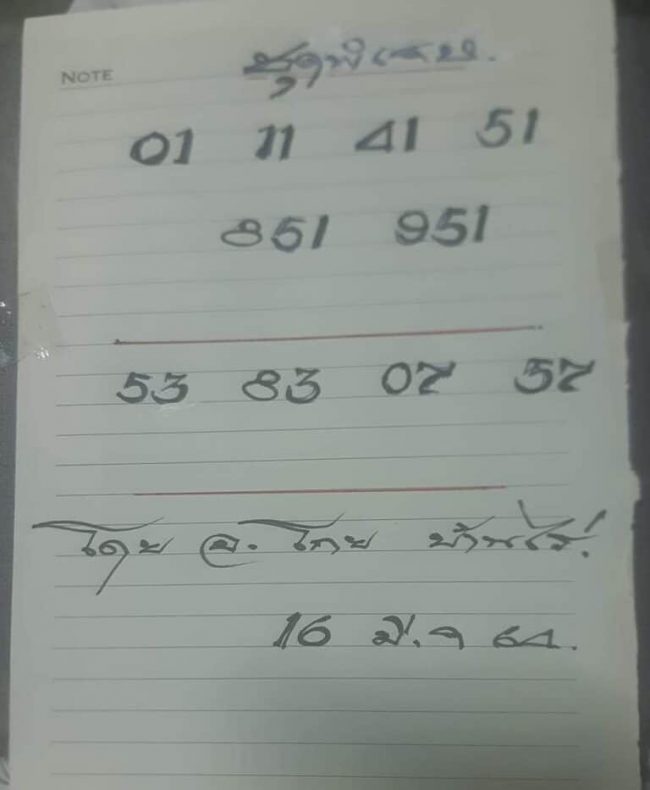 NOTE
ชุดพิเศษ.
01 11 41 51
851 951
53 83 07 57
โดย อ. โกย บ้านไร่.
16 มี.ค 64.